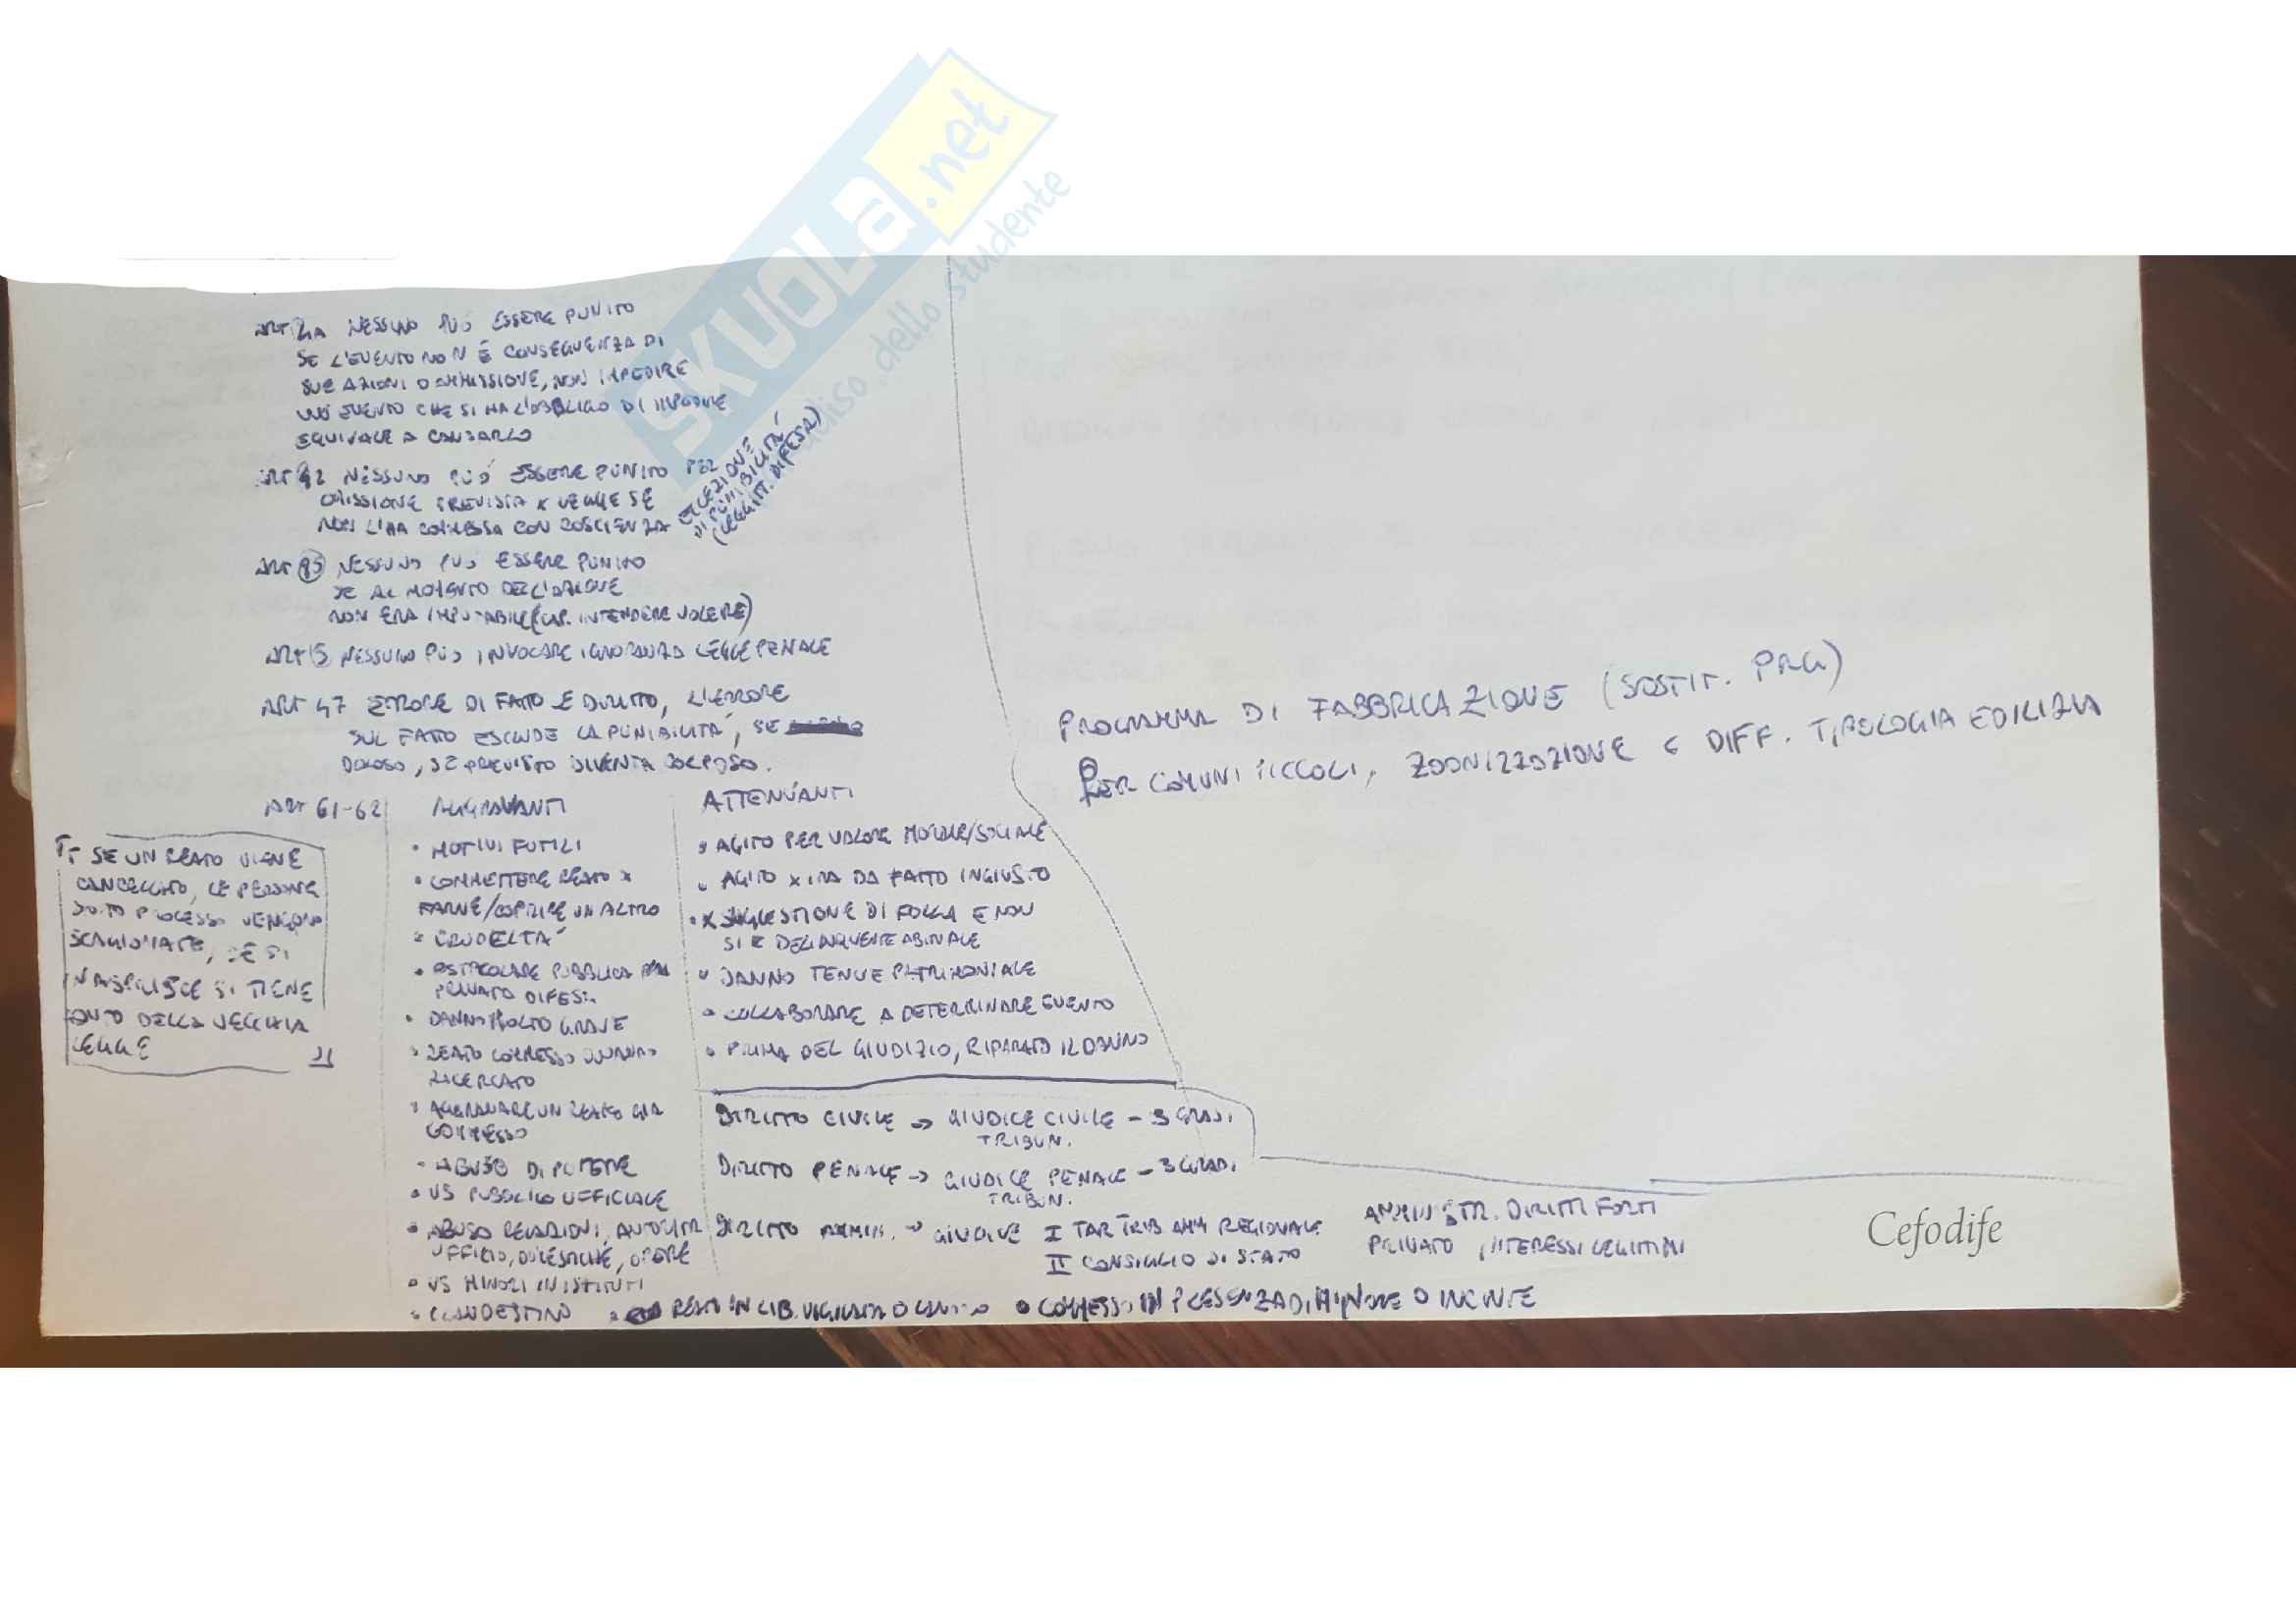 SKUOLA.net
dello studente
NESSUNO PUÒ ESSERE PUNITO
SE L'EVENTO NON È CONSEGUENZA DI
SUE AZIONI O OMMISSIONE, NON IMPEDIRE
EVENTO CHE SI HA L'OBBLIGO DI IMPEDIRE
EQUIVALE A CAUSARLO
ART 42 NESSUNO PUÒ ESSERE PUNITO PER
OMISSIONE PREVISTA X LEGGE SE
NON L'HA COMMESSA CON COSCIENZA
ECCEZIONE
DI PUNIBILITÀ
(LEGGITT. DIFESA)
ART 85 NESSUNO PUÒ ESSERE PUNITO
SE AL MOMENTO DELL'AZIONE
NON ERA IMPUTABILE (CAP. INTENDERE VOLERE)
ART 5 NESSUNO PUÒ INVOCARE IGNORANZA LEGGE PENALE
ART 47 ERRORE DI FATTO E DIRITTO, L'ERRORE
SUL FATTO ESCLUDE LA PUNIBILITÀ, SE
DOLOSO, SE PREVISTO DIVENTA COLPOSO.
ART 61-62
AGGRAVANTI
• MOTIVI FUTILI
• COMMETTERE REATO X
FARNE/COPRIRE UN ALTRO
• CRUDELTÀ
• OSTACOLARE PUBBLICA
PRIVATO DIFESA
• DANNO MOLTO GRAVE
• REATO COMMESSO QUANDO
RICERCATO
• AGGRAVARE UN REATO GIÀ
COMMESSO
• ABUSO DI POTERE
• VS PUBBLICO UFFICIALE
• ABUSO RELAZIONI, AUTORITÀ
UFFICIO, DOMESTICHE, OPERE
• VS MINORI IN ISTITUTI
• CLANDESTINO
• REATO IN LIB. VIGILATA O
• COMMESSO IN PRESENZA DI MINORE O
ATTENUANTI
• AGITO PER VALORE MORALE/SOCIALE
• AGITO X IRA DA FATTO INGIUSTO
• X SUGGESTIONE DI FOLLA E NON
SI È DELINQUENTE ABITUALE
• DANNO TENUE PATRIMONIALE
• COLLABORARE A DETERMINARE EVENTO
• PRIMA DEL GIUDIZIO, RIPARATO IL DANNO
SE UN REATO VIENE
CANCELLATO, LE PERSONE
SOTTO PROCESSO VENGONO
SCAGIONATE, SE SI
INASPRISCE SI TIENE
CONTO DELLA VECCHIA
LEGGE
DIRITTO CIVILE → GIUDICE CIVILE - 3 GRADI
TRIBUN.
DIRITTO PENALE → GIUDICE PENALE - 3 GRADI
TRIBUN.
DIRITTO AMMIN. → GIUDICE I TAR TRIB AMM REGIONALE
II CONSIGLIO DI STATO
AMMINISTR. DIRITTI FORTI
PRIVATO INTERESSI LEGITTIMI
PROGRAMMA DI FABBRICAZIONE (SOSTIT. PRG)
PER COMUNI PICCOLI, ZOONIZZAZIONE E DIFF. TIPOLOGIA EDILIZIA
Cefodife